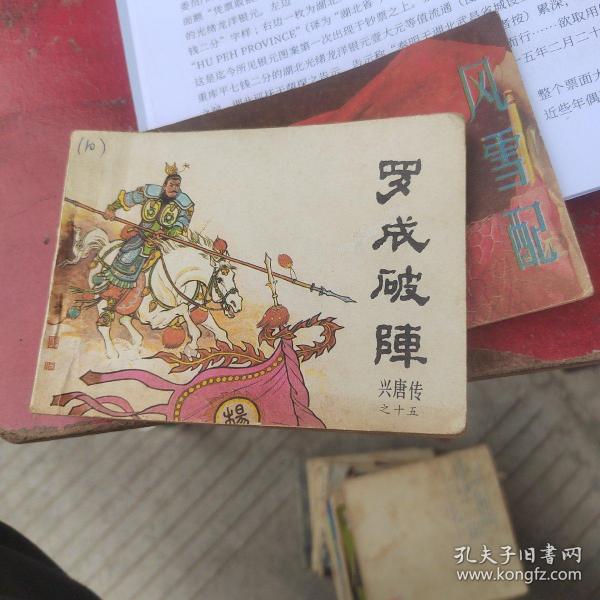 面额“凭票取
的光绪龙洋银元。左边
钱二分”字样；右边一枚为湖北
“HU PEH PROVINCE”（译为“湖北省
这是迄今所见银元图案第一次出现于钞票之上。
重库平七钱二分的湖北光绪龙洋银元壹大元等值流通
累深，
欲取用
五年二月二十
整个票面大
近些年偶
风雪配
(10)
罗成破陣
兴唐传
之十五
楊
孔夫子旧书网
www.kongfz.com